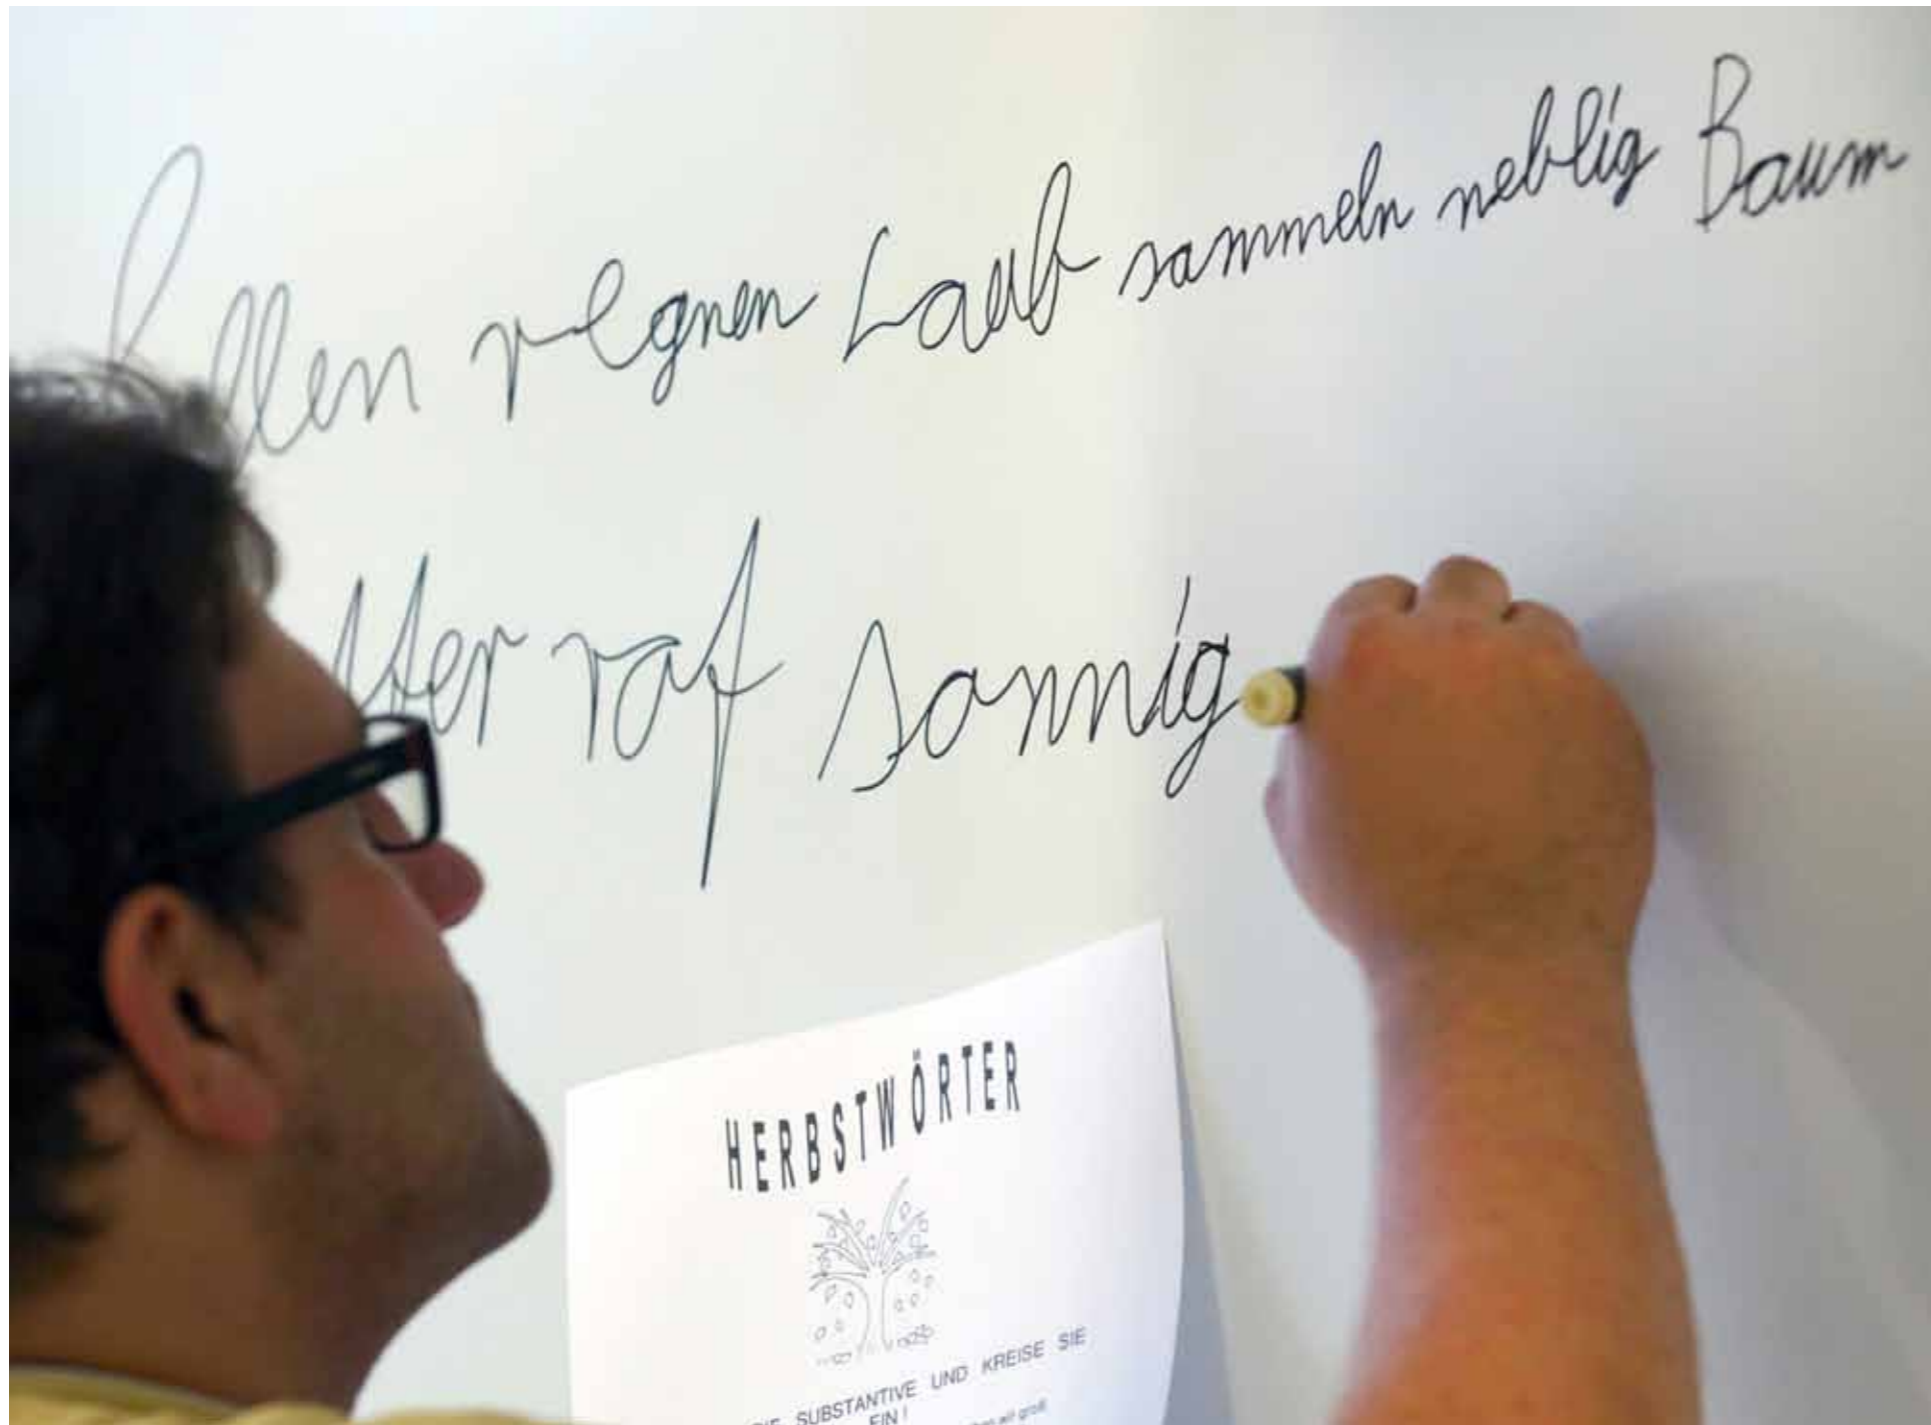 regnen Laub sammeln neblig Baum
rot sonnig
HERBSTWÖRTER
SUBSTANTIVE UND KREISE SIE
EIN!
wir groß